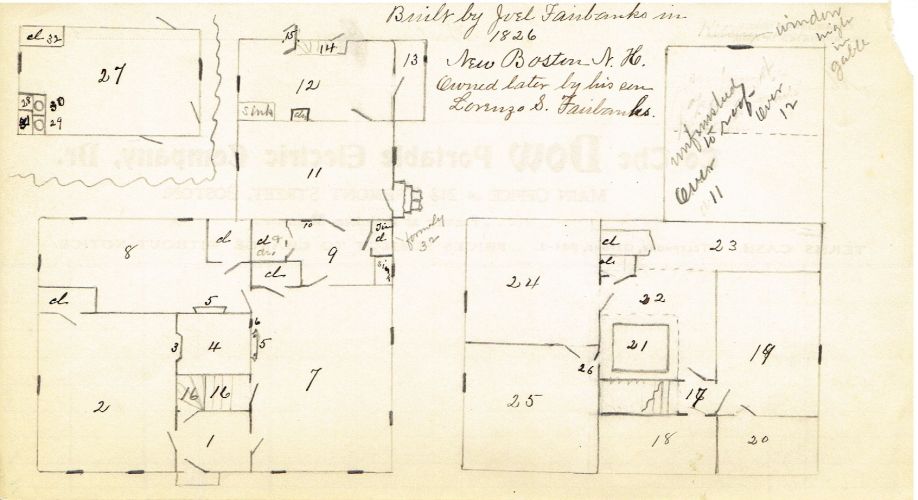 Built by Joel Fairbanks in
1826
New Boston N. H.
Owned later by his son
Lorenzo S. Fairbanks.
cl 32
27
28
30
29
15
14
12
13
Sink
11
window
high
in
gable
unfinished
to roof
Over
12
Over
11
formerly
32
8
cl
cl
10
9
cl
5
3
4
6
5
2
16
16
7
1
cl
23
24
22
21
19
26
25
17
18
20
Dow Portable Electric Company, Dr.
MAIN OFFICE
STREET, BOSTON
TERMS CASH